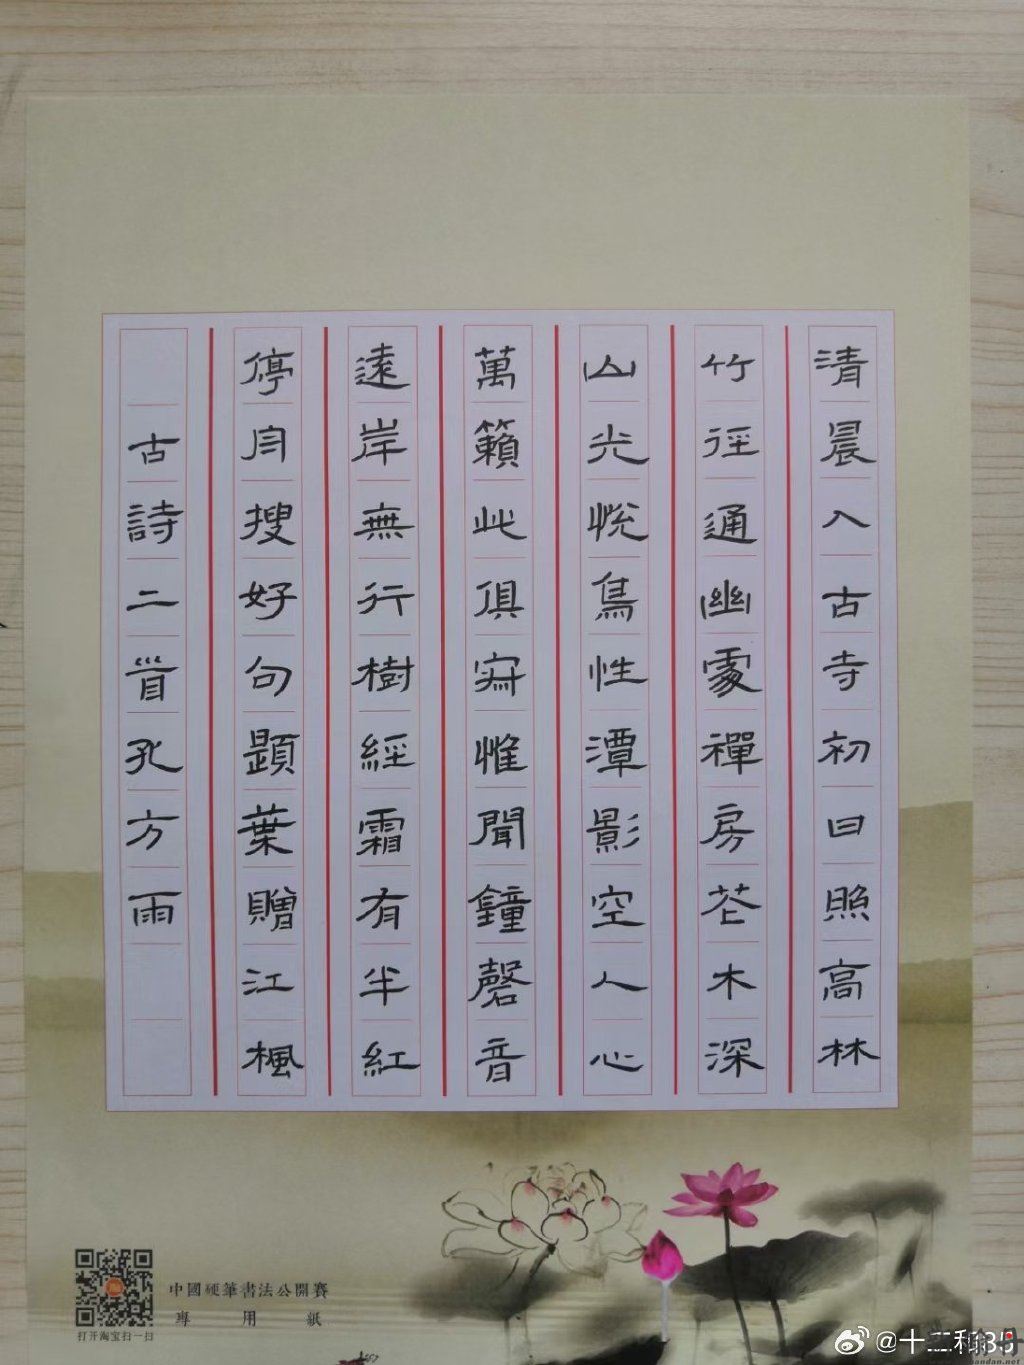 清晨入古寺初日照高林
竹徑通幽處禪房花木深
山光悅鳥性潭影空人心
萬籟此俱寂惟聞鐘磬音
遠岸無行樹經霜有半紅
停舟搜好句題葉贈江楓
古詩二首孔方雨
中國硬筆書法公開賽
專用紙
打开淘宝扫一扫